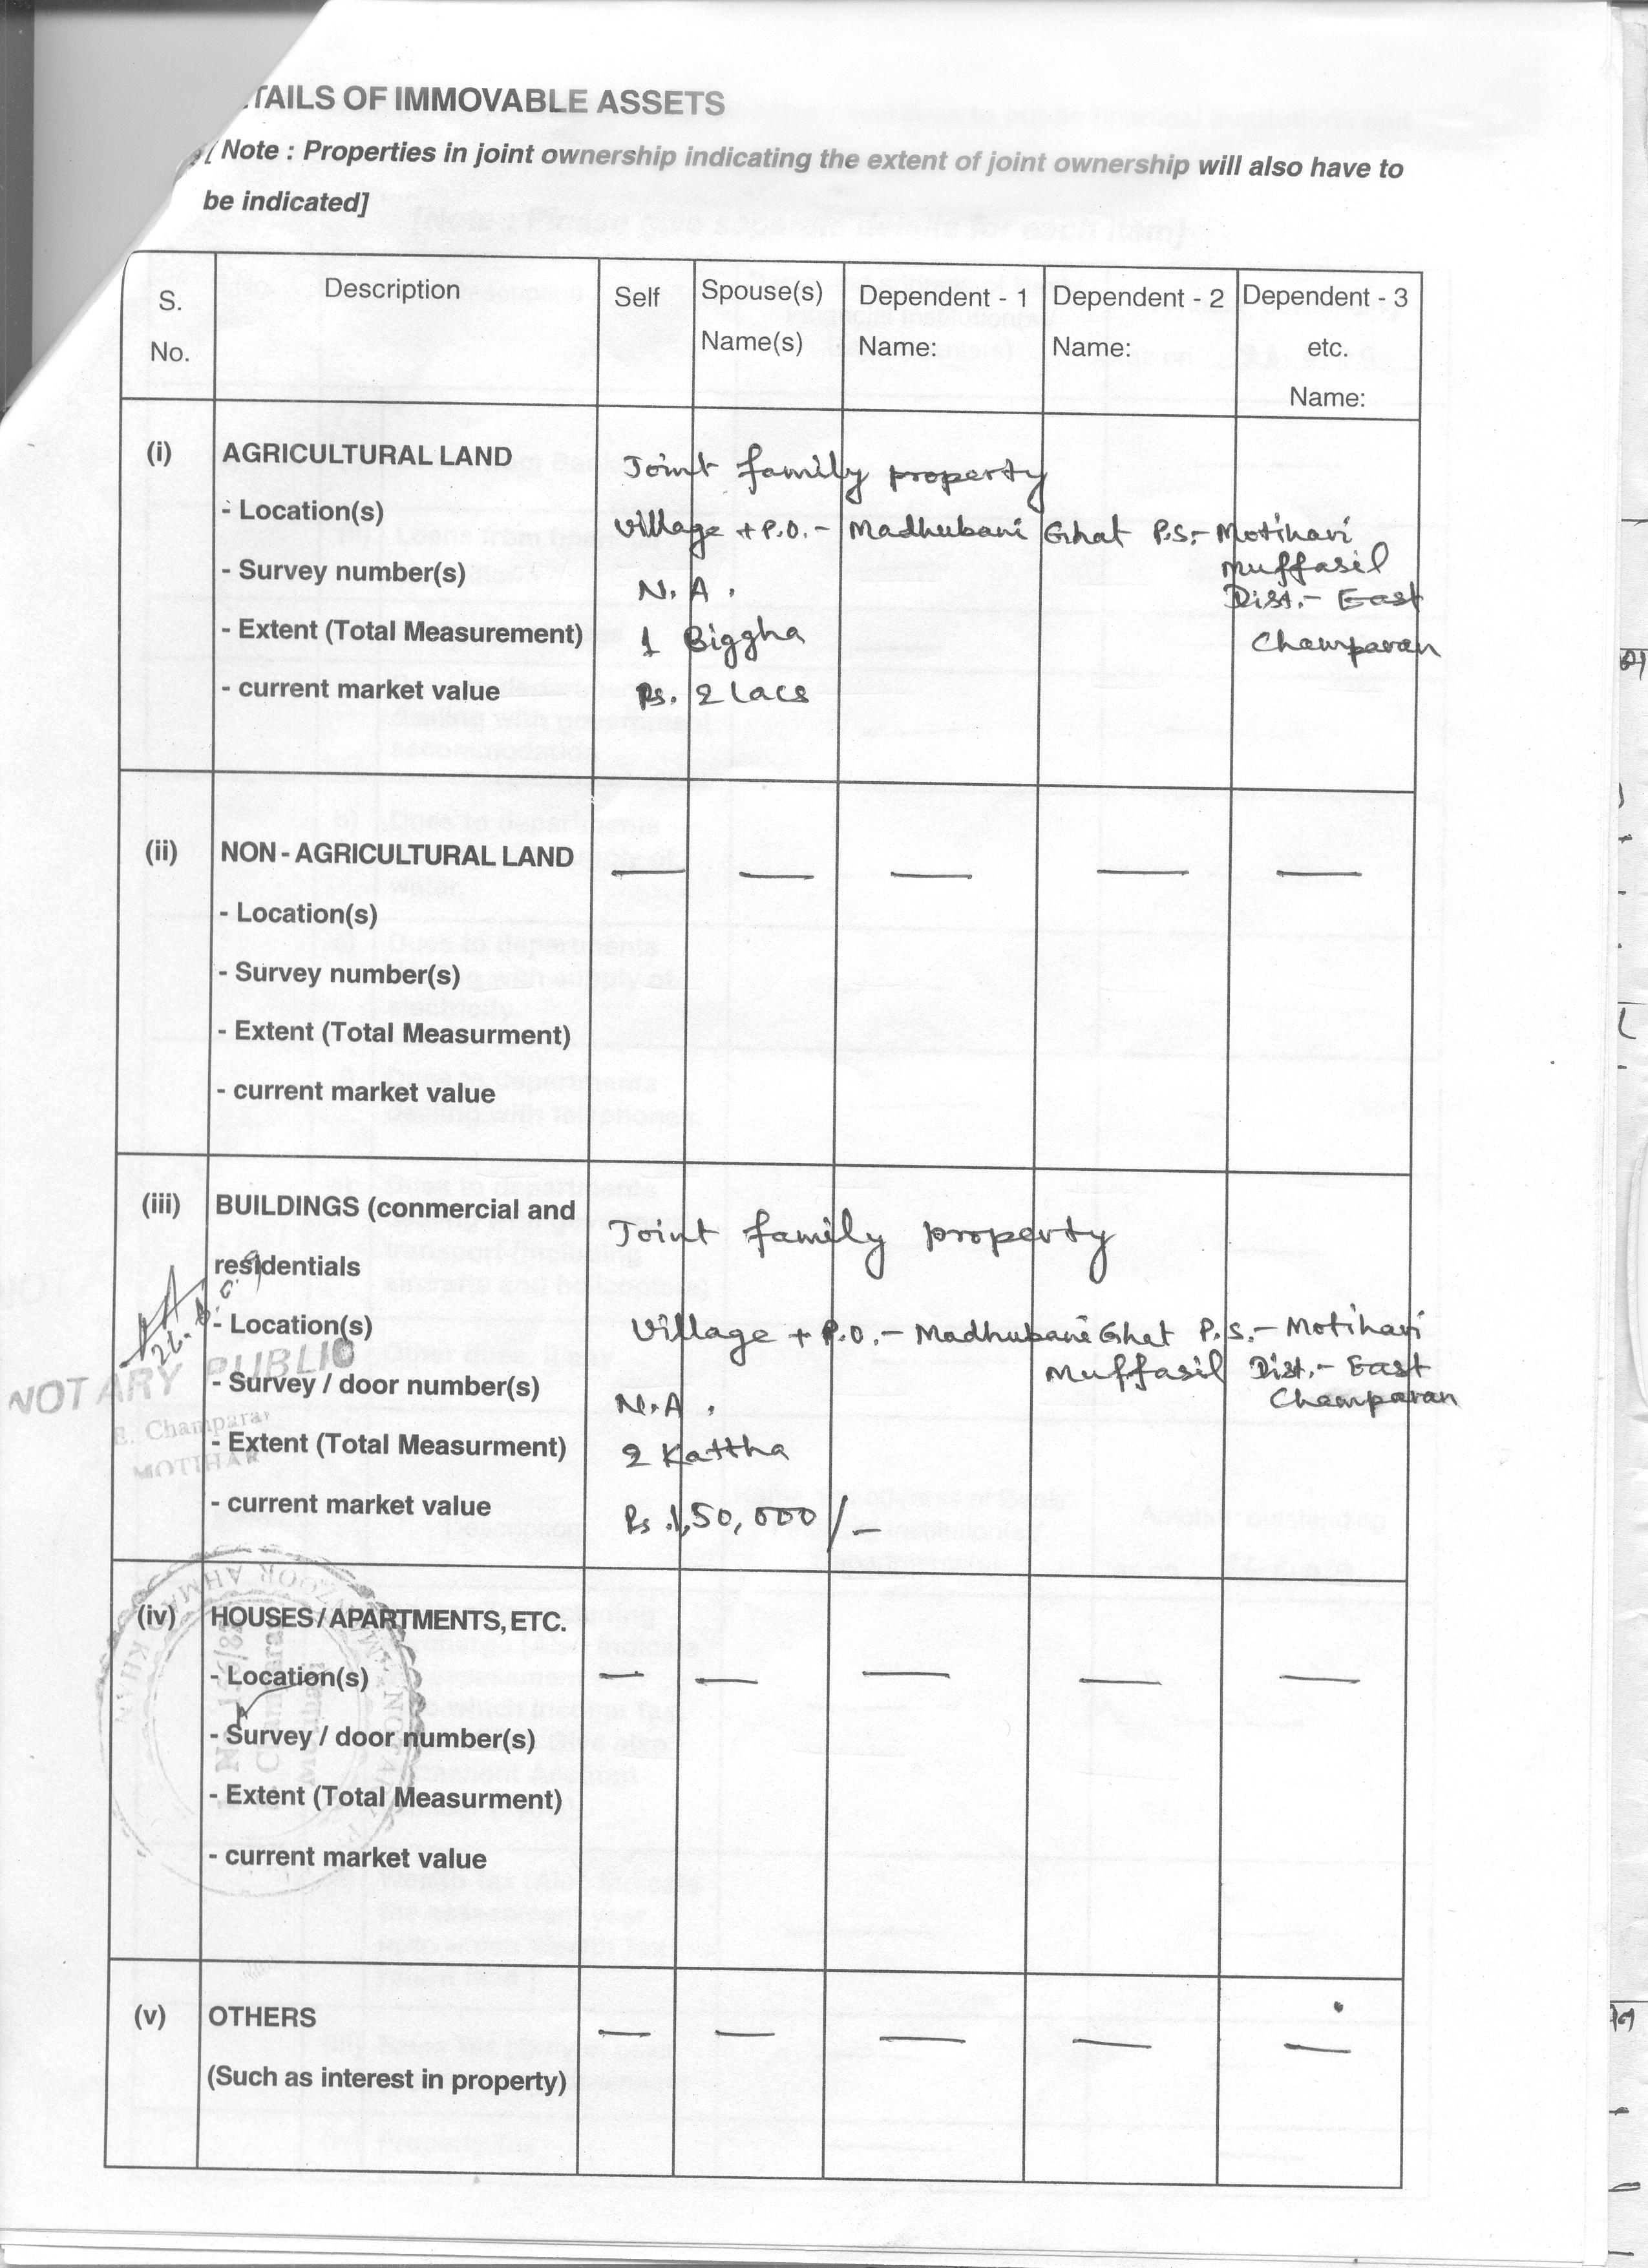 TAILS OF IMMOVABLE ASSETS
[ Note : Properties in joint ownership indicating the extent of joint ownership will also have to
be indicated]
S. No. Description Self Spouse(s) Name(s) Dependent - 1 Name: Dependent - 2 Name: Dependent - 3 etc. Name:
(i) AGRICULTURAL LAND Joint family property
- Location(s) Village + P.O. - Madhubani Ghat P.S. - Motihari
Muffasil
- Survey number(s) N. A.
Dist. - East
- Extent (Total Measurement) 1 Biggha Champaran
- current market value Rs. 2 Lacs
(ii) NON - AGRICULTURAL LAND — — — — —
- Location(s)
- Survey number(s)
- Extent (Total Measurment)
- current market value
(iii) BUILDINGS (conmercial and Joint family property
residentials
- Location(s) Village + P.O. - Madhubani Ghat P.S. - Motihari
Muffasil Dist. - East
Champaran
- Survey / door number(s) N.A.
- Extent (Total Measurment) 2 Kattha
- current market value Rs. 1,50,000/-
NOTARY PUBLIC
E. Champaran
MOTIHAR
(iv) HOUSES / APARTMENTS, ETC.
- Location(s) — — — — —
- Survey / door number(s)
- Extent (Total Measurment)
- current market value
(v) OTHERS — — — — —
(Such as interest in property)